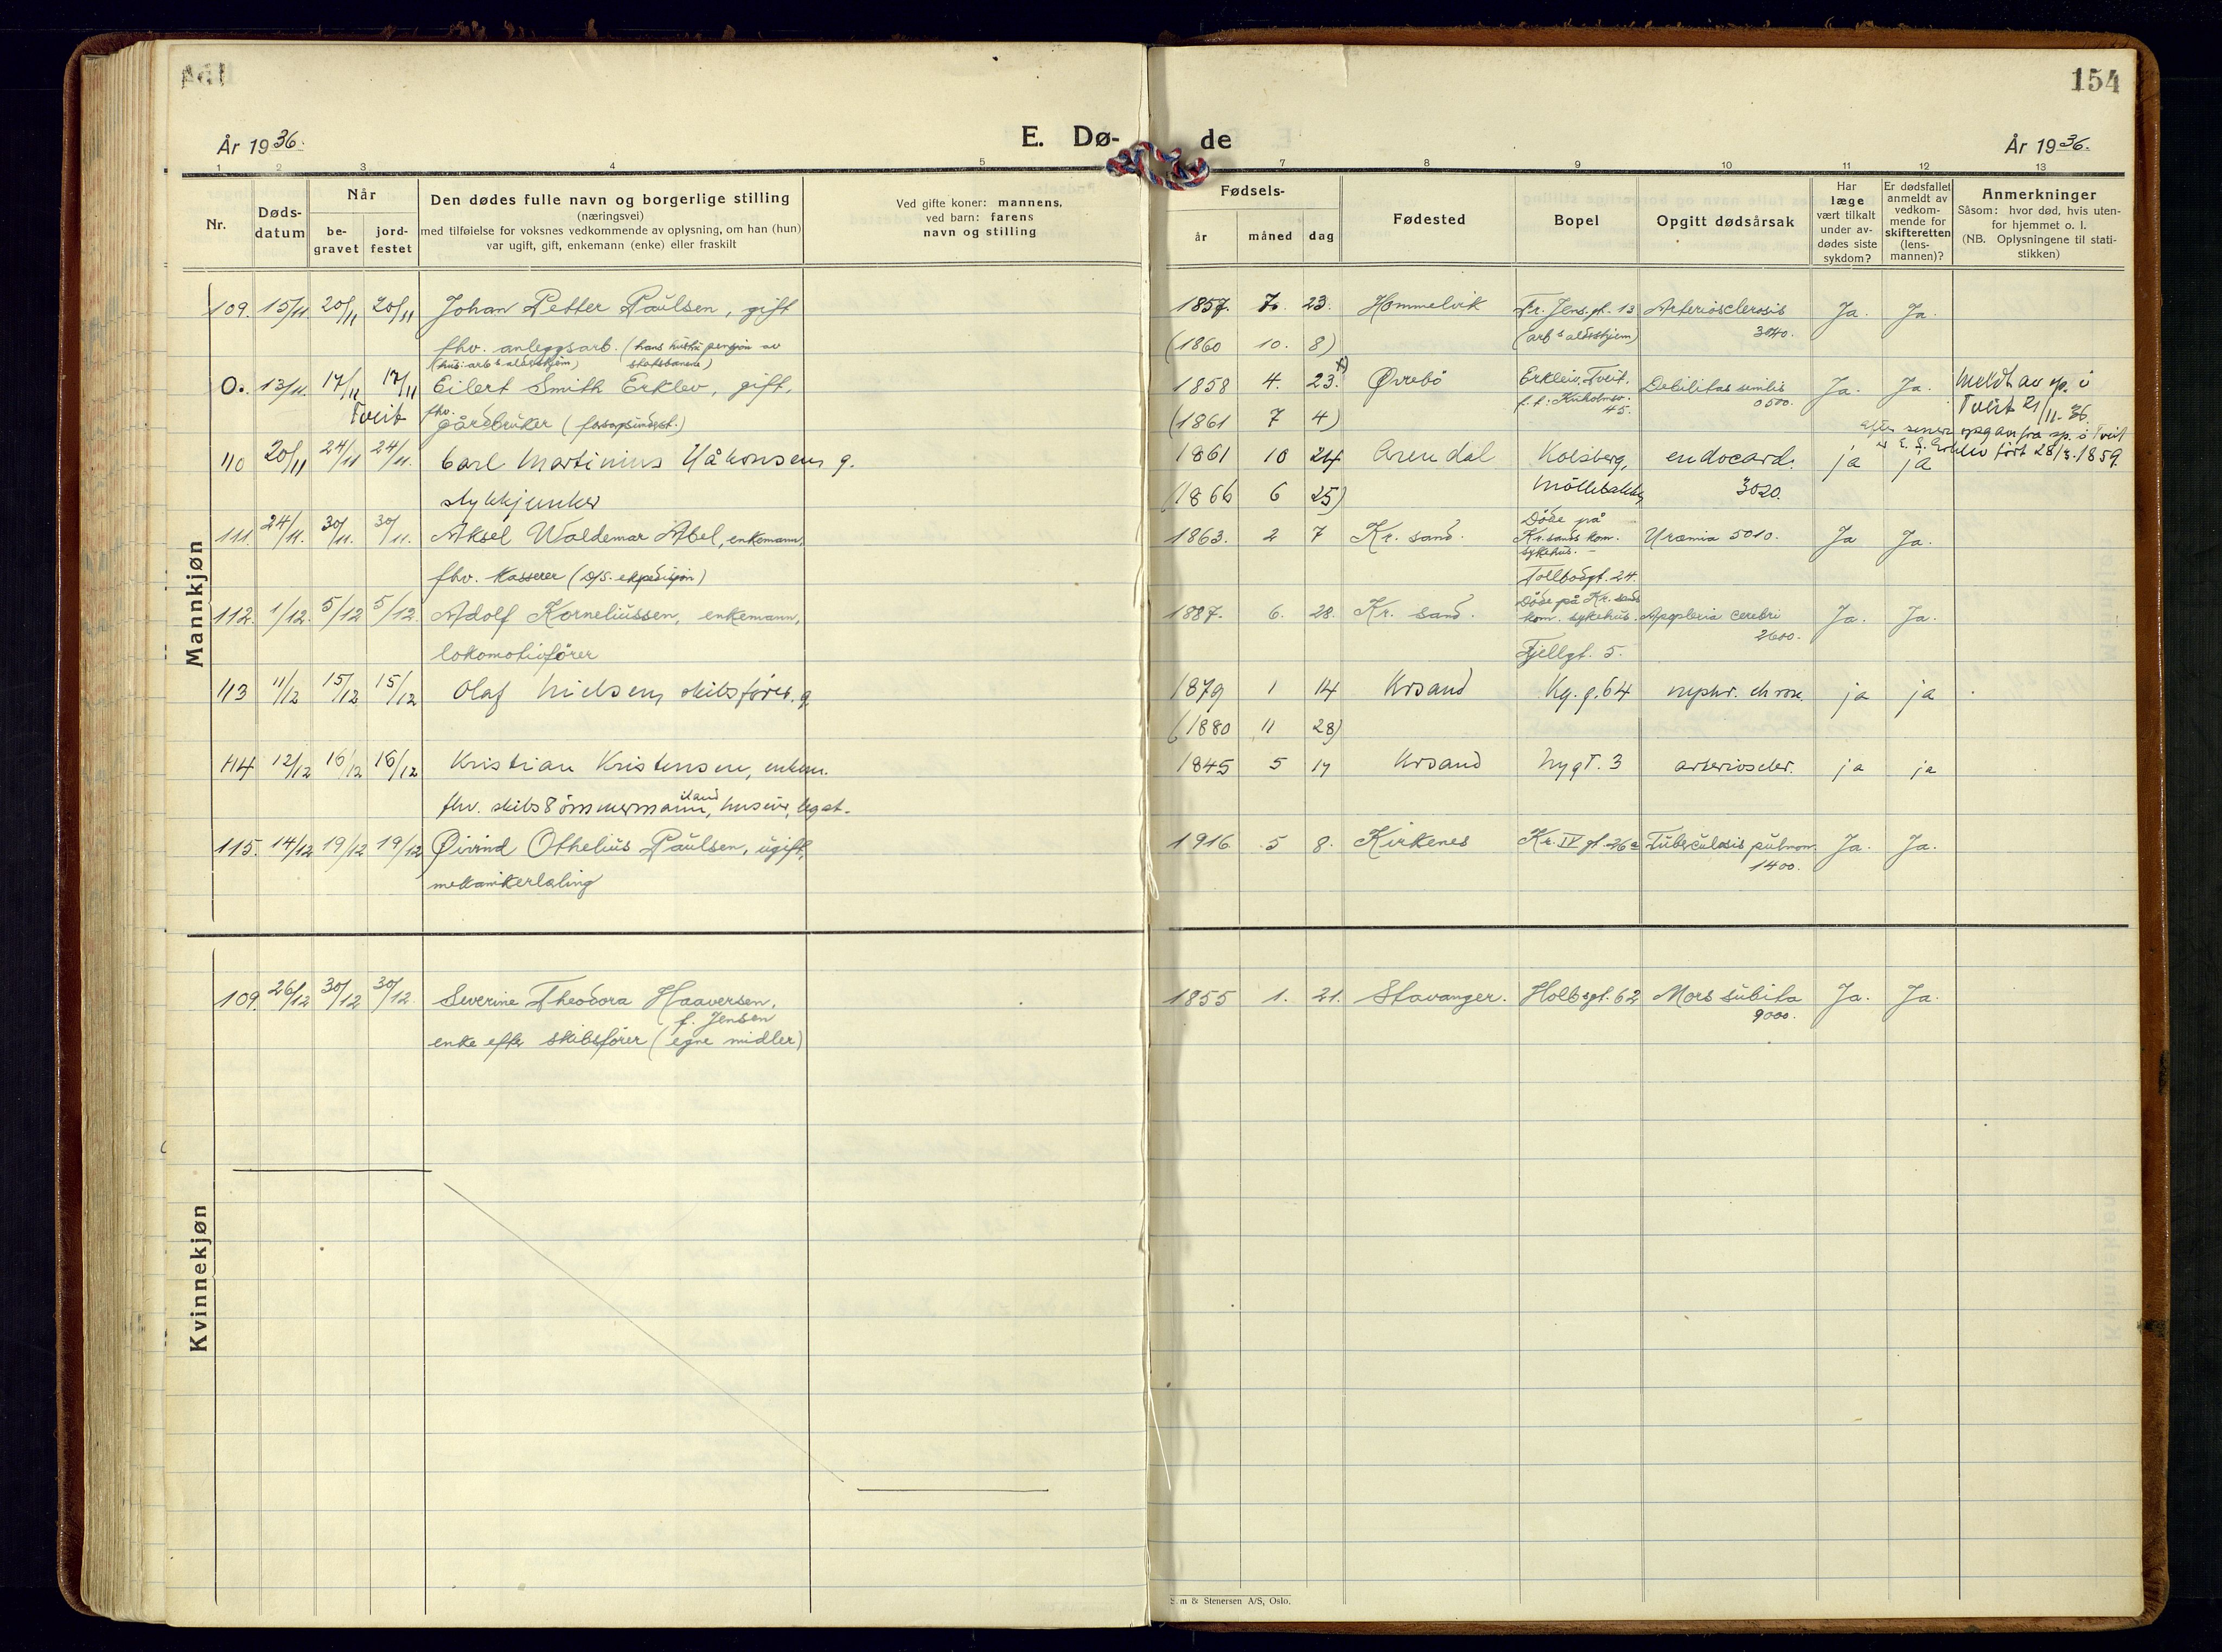 154
År 1936.
E. Dø-
de
År 1936.
1 2 3 4 5 7 8 9 10 11 12 13
Nr.
Døds-
datum
Når
be-
gravet
jord-
festet
Den dødes fulle navn og borgerlige stilling
(næringsvei)
med tilføielse for voksnes vedkommende av oplysning, om han (hun)
var ugift, gift, enkemann (enke) eller fraskilt
Ved gifte koner: mannens,
ved barn: farens
navn og stilling
Fødsels-
år måned dag
Fødested
Bopel
Opgitt dødsårsak
Har
læge
vært tilkalt
under av-
dødes siste
sykdom?
Er dødsfallet
anmeldt av
vedkom-
mende for
skifteretten
(lens-
mannen)?
Anmerkninger
Såsom: hvor død, hvis uten-
for hjemmet o. l.
(NB. Oplysningene til stati-
stikken)
Mannkjøn
109. 15/11 20/11 20/11 Johan Petter Paulsen, gift 1857. 7. 23. Hommelvik Fr. Jens.gt. 13 Arteriosclerosis Ja. Ja.
fhv. anleggsarb. (hans hustru pensjon av (1860 10. 8) (arb s aldershjem) 3040.
(hus: arb s. aldershjem) statsbanene)
0. 13/11. 17/11 17/11 Eilert Smith Erklev, gift, 1858 4. 23. x) Øvrebö Erkleiv, Tveit, Debilitas senilis Ja. Ja. Meldt av sp. i
Tveit fhv. gårdbruker (forsorgsunderst.) (1861 7 4) f. t: Kuholmsv. 45. 0500. Tveit 21/11-36.
efter senere opg av fra sp. i Tveit
er E. S. Erklev født 28/3.1859.
110 20/11 24/11 24/11. Carl Martinius Håkonsen, g. 1861 10 24 Arendal Kolsberg, endocard. ja ja
stykkjunker (1866 6 25) Möllebakken 3020.
111. 24/11. 30/11. 30/11. Aksel Waldemar Abel, enkemann, 1863. 2 7 Kr. sand. Döde på Kr.sands kom. sykehus. Uræmia 5010. Ja Ja.
fhv. Kasserer (D/S. ekspedisjon) Tollbodgt. 24.
112. 1/12. 5/12 5/12. Adolf Korneliussen, enkemann, 1887. 6. 28. Kr. sand. Döde på Kr. sands kom. sykehus. Apoplexia cerebri Ja. Ja.
lokomotivförer Fjellgt. 5. 2600.
113 11/12 15/12 15/12 Olaf Nielsen, skibsförer. g 1879 1 14 Krsand Kg. g. 64 nephr. chron. ja ja
(1880 11 28)
114 12/12 16/12 16/12 Kristian Kristensen, enkem. 1845 5 17 Krsand Nygt. 3 arterioscler. ja ja
fhv. skibstömmermann, huseier, legat.
115. 14/12 19/12 19/12 Øivind Othelius Paulsen, ugift, 1916. 5 8. Kirkenes Kr. IV gt. 26a Tuberculosis pulmon. Ja. Ja.
mekanikerlærling 1400.
Kvinnekjøn
109. 26/12 30/12 30/12. Severine Theodora Haaversen, 1855 1. 21. Stavanger. Holbgt. 62 Mors subita Ja. Ja.
f. Jensen 9000.
enke efter skibsförer (egne midler)
& Stenersen A/S, Oslo.